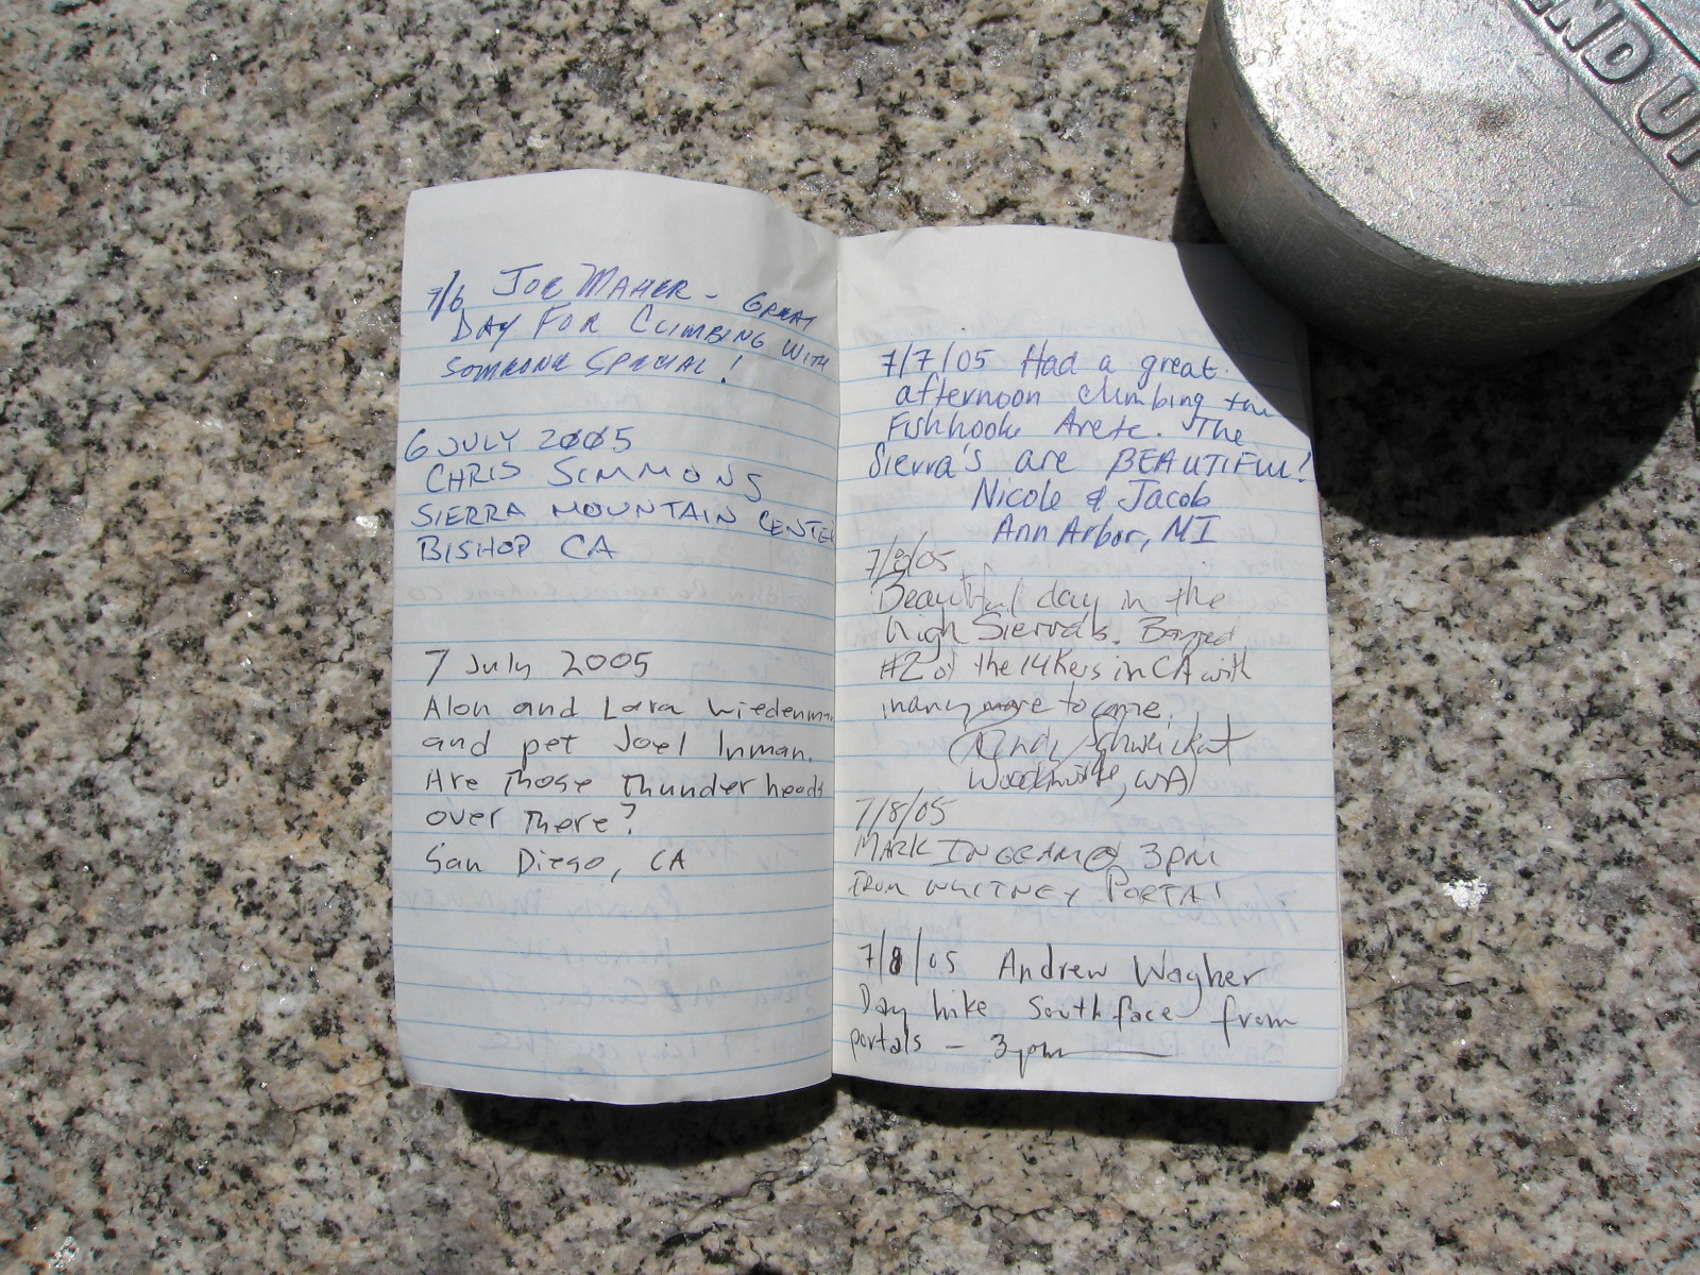 7/6 JOE MAHER - GREAT
DAY FOR CLIMBING WITH
SOMEONE SPECIAL!
6 JULY 2005
CHRIS SIMMONS
SIERRA MOUNTAIN CENTER
BISHOP CA
7 July 2005
Alon and Lara Wiedenman
and pet Joel Inman.
Are those thunderheads
over there?
San Diego, CA
7/7/05 Had a great
afternoon climbing the
Fishhook Arete. The
Sierra's are BEAUTIFUL!
Nicole & Jacob
Ann Arbor, MI
7/8/05
Beautiful day in the
high Sierra's. Bagged
#2 of the 14Kers in CA with
many more to come.
Woodinville, WA
7/8/05
MARK INGRAM @ 3PM
FROM WHITNEY PORTAL
7/8/05 Andrew Wagher
Day hike South face from
portals - 3pm
END UP